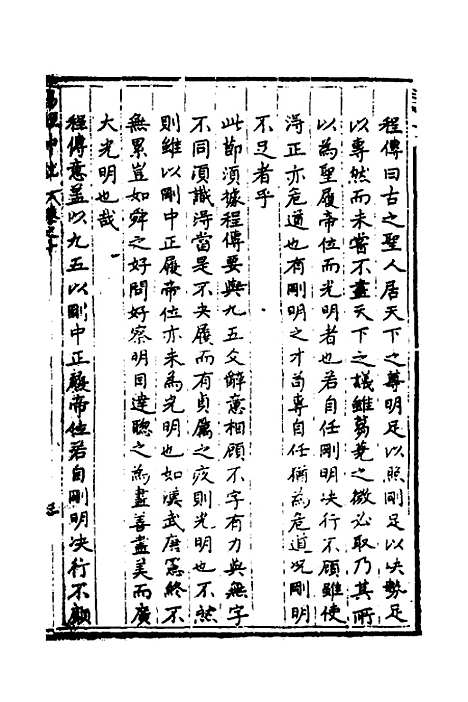 程傳曰古之聖人居天下之尊明足以照剛足以决勢足
以專然而未嘗不盡天下之議雖蒭蕘之微必取乃其所
以為聖履帝位而光明者也若自任剛明决行不顧雖使
淂正亦危道也有剛明之才苟專自任猶為危道况剛明
不足者乎
此節湏據程傳要與九五爻辭意相顧不字有力與無字
不同湏識淂當是不夬履而有貞厲之疚則光明也不然
則雖以剛中正履帝位亦未為光明也如漢武唐憲終不
無累豈如舜之好問好察明目達聰之為盡善盡美而廣
大光明也哉
程傳意盖以九五以剛中正履帝位若自剛明决行不顧